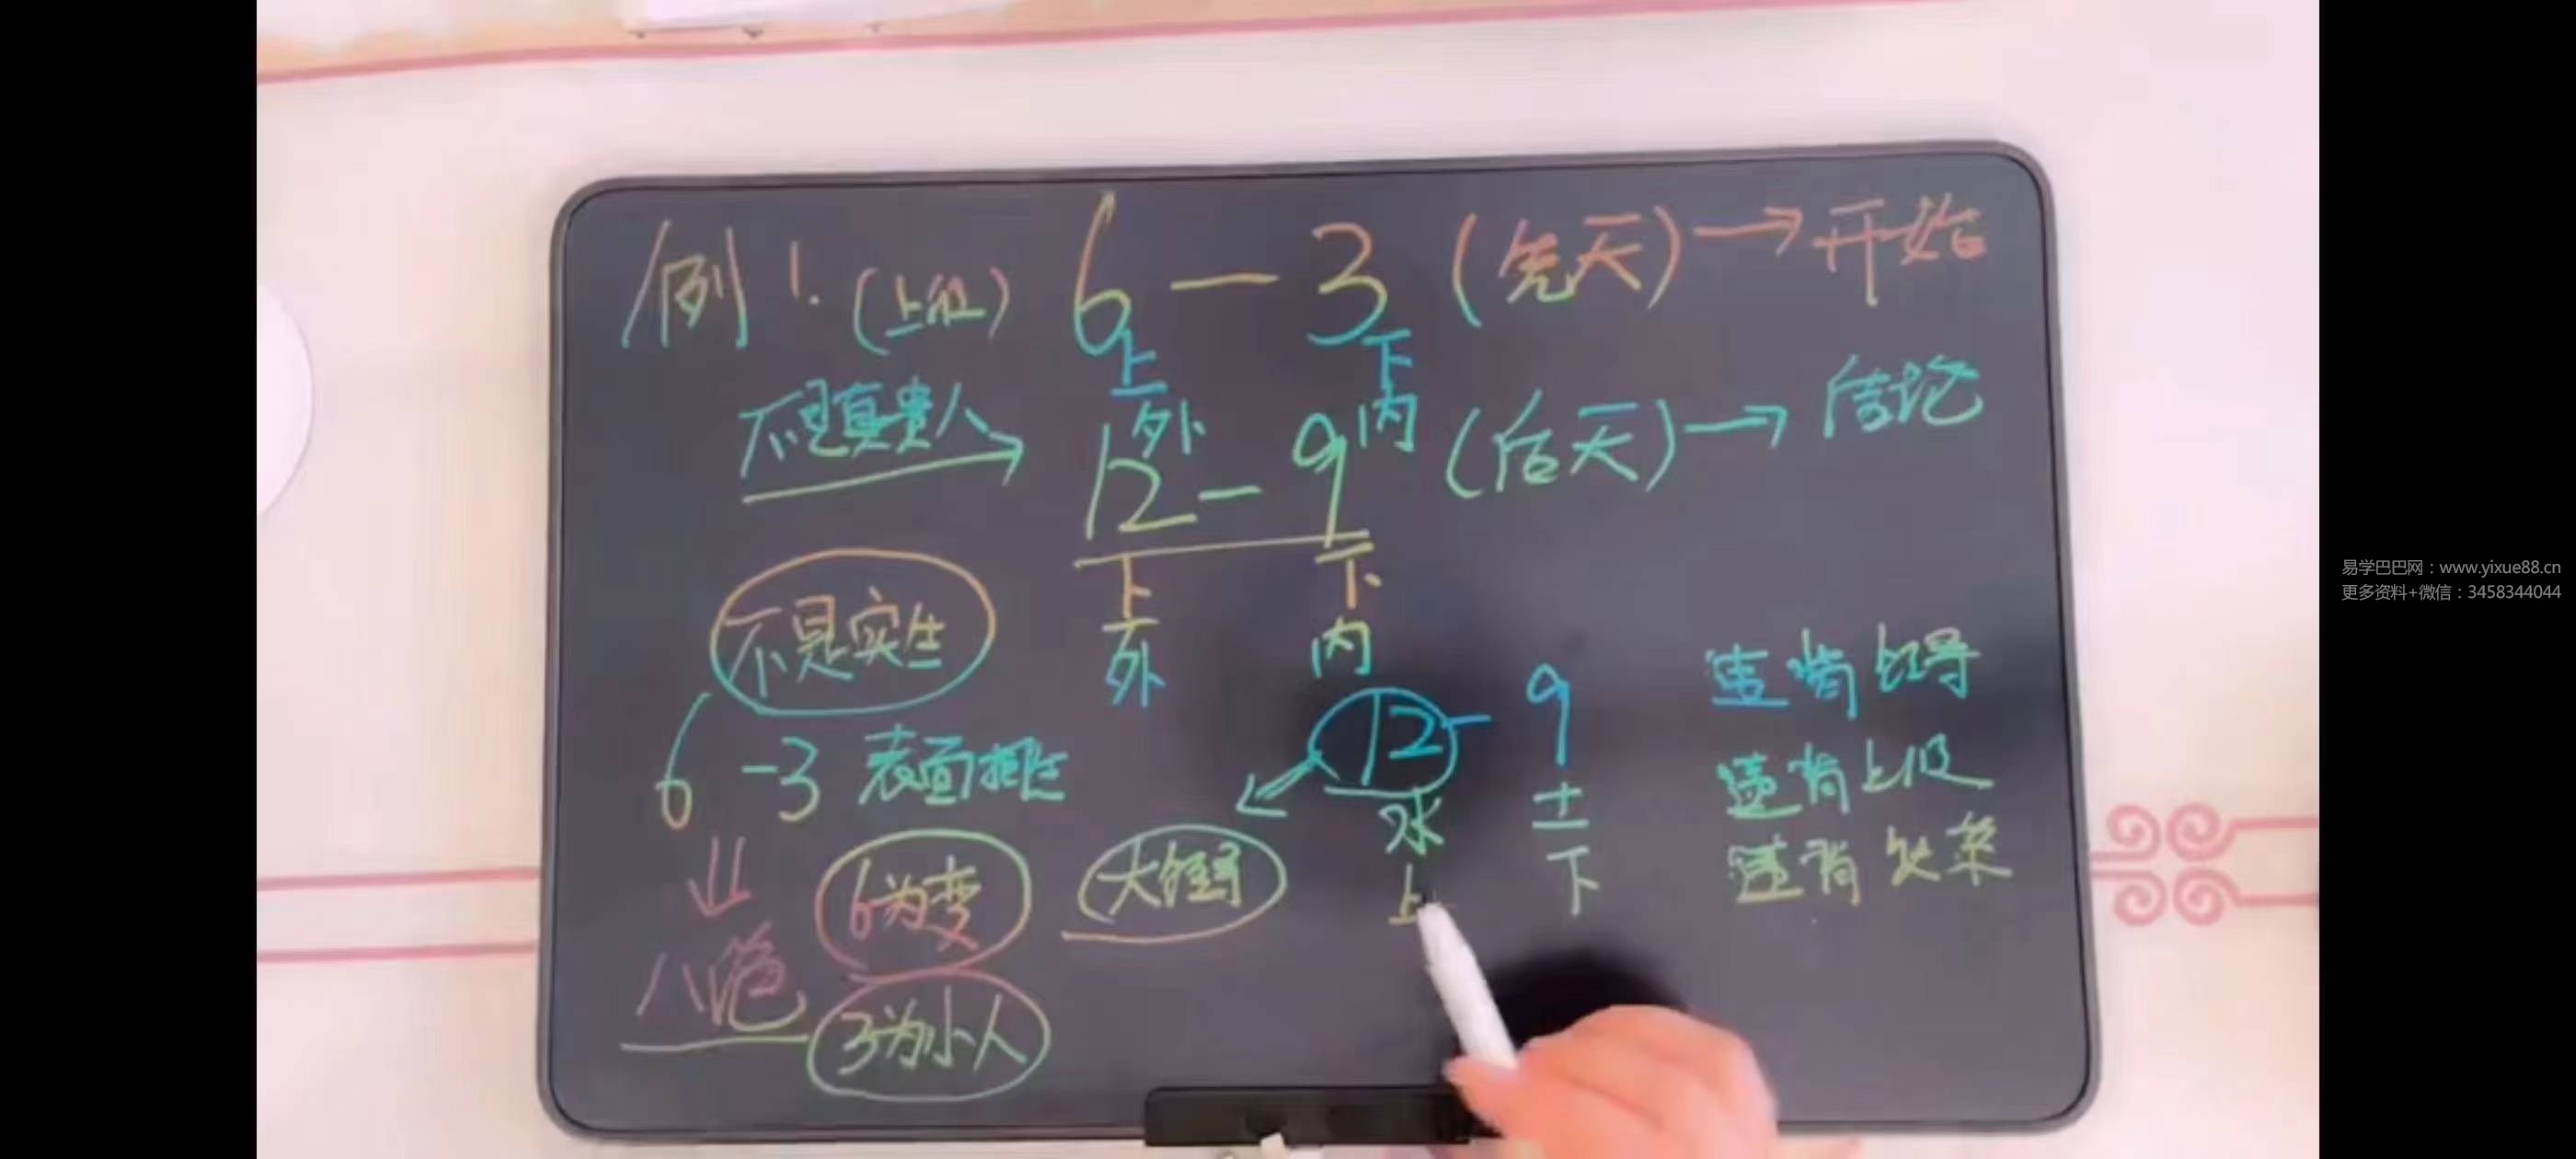 例1. (上征) 6 — 3 (先天) → 开始
上 下
外 内
不是真贵人 → 12 — 9 (后天) → 结论
上 下
外 内
不是实生
6 — 3 表面挺生
12 — 9
水 土
上 下
大领导
八卦
6为变
3为小人
违背领导
违背上级
违背政策
易学巴巴网：www.yixue88.cn
更多资料+微信：3458344044